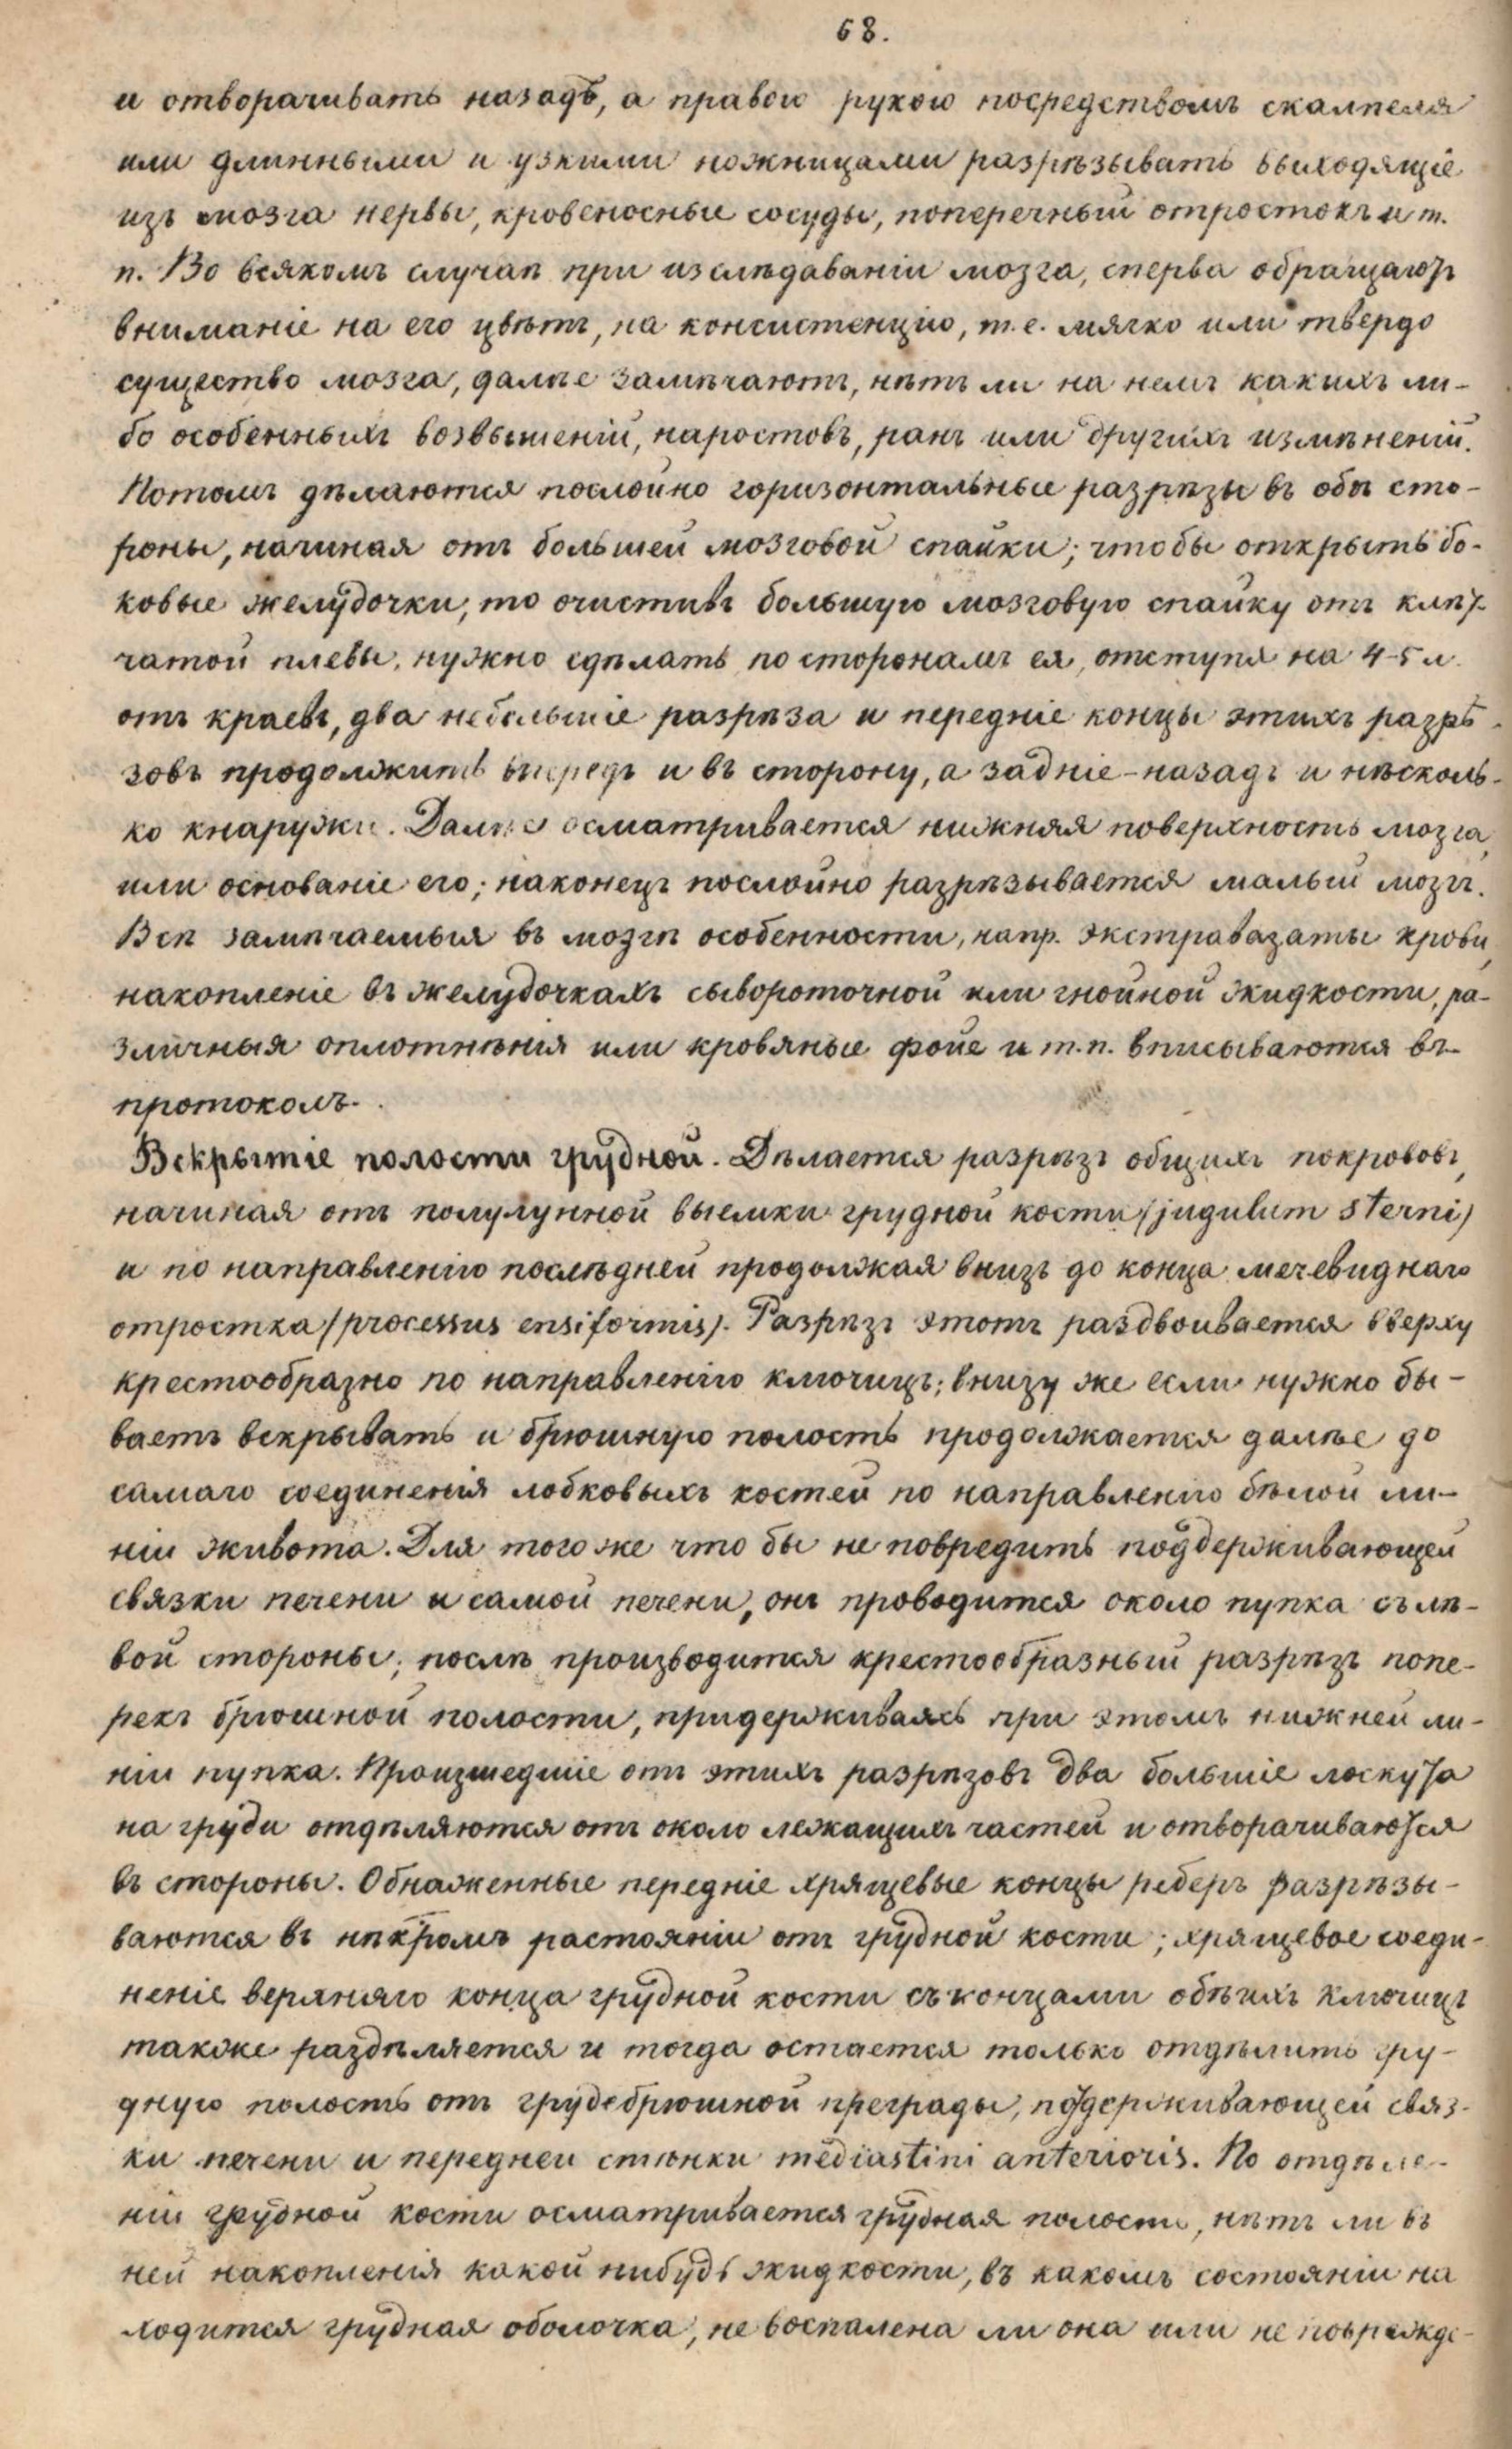 68.
и отворачивать назадъ, а правою рукою посредствомъ скалпеля
или длинными и узкими ножницами разрѣзывать выходящіе
изъ мозга нервы, кровеносные сосуды, поперечный отростокъ и т.
п. Во всякомъ случаѣ при изслѣдаваніи мозга, сперва обращаютъ
вниманіе на его цвѣтъ, на консистенцію, т.е. мягко или твердо
существо мозга, далѣе замѣчаютъ, нѣтъ ли на немъ какихъ ли-
бо особенныхъ возвышеній, наростовъ, ранъ или другихъ измѣненій.
Потомъ дѣлаются послойно горизонтальные разрѣзы въ обѣ сто-
роны, начиная отъ большей мозговой спайки; чтобы открыть бо-
ковые желудочки, то очистивъ большую мозговую спайку отъ клѣт-
чатой плевы, нужно сдѣлать по сторонамъ ея, отступя на 4-5 л.
отъ краевъ, два небольшіе разрѣза и передніе концы этихъ разрѣ-
зовъ продолжить впередъ и въ сторону, а задніе - назадъ и нѣсколь-
ко кнаружи. Далѣе осматривается нижняя поверхность мозга,
или основаніе его; наконецъ послойно разрѣзывается малый мозгъ.
Всѣ замѣчаемыя въ мозгѣ особенности, напр. экстравазаты крови,
накопленіе въ желудочкахъ сывороточной или гнойной жидкости, ра-
зличныя оплотнѣнія или кровяные фойе и т.п. вписываются въ
протоколъ.
Вскрытіе полости грудной. Дѣлается разрѣзъ общихъ покрововъ,
начиная отъ полулунной выемки грудной кости (jugulum sterni)
и по направленію послѣдней продолжая внизъ до конца мечевиднаго
отростка (processus ensiformis). Разрѣзъ этотъ раздвоивается вверху
крестообразно по направленію ключицъ; внизу же если нужно бы-
ваетъ вскрывать и брюшную полость продолжается далѣе до
самаго соединенія лобковыхъ костей по направленію бѣлой ли-
ніи живота. Для того же что бы не повредить поддерживающей
связки печени и самой печени, онъ проводится около пупка съ лѣ-
вой стороны; послѣ производится крестообразный разрѣзъ попе-
рекъ брюшной полости, придерживаясь при этомъ нижней ли-
ніи пупка. Произшедшіе отъ этихъ разрѣзовъ два большіе лоскута
на груди отдѣляются отъ около лежащихъ частей и отворачиваются
въ стороны. Обнаженные передніе хрящевые концы реберъ разрѣзы-
ваются въ нѣкромъ растояніи отъ грудной кости; хрящевое соеди-
неніе верхняго конца грудной кости съ концами обѣихъ ключицъ
также раздѣляется и тогда остается только отдѣлить гру-
дную полость отъ грудебрюшной преграды, поддерживающей связ-
ки печени и передней стѣнки mediastini anterioris. По отдѣле-
ніи грудной кости осматривается грудная полость, нѣтъ ли въ
ней накопленія какой нибудь жидкости, въ какомъ состояніи на
ходится грудная оболочка, не воспалена ли она или не поврежде-